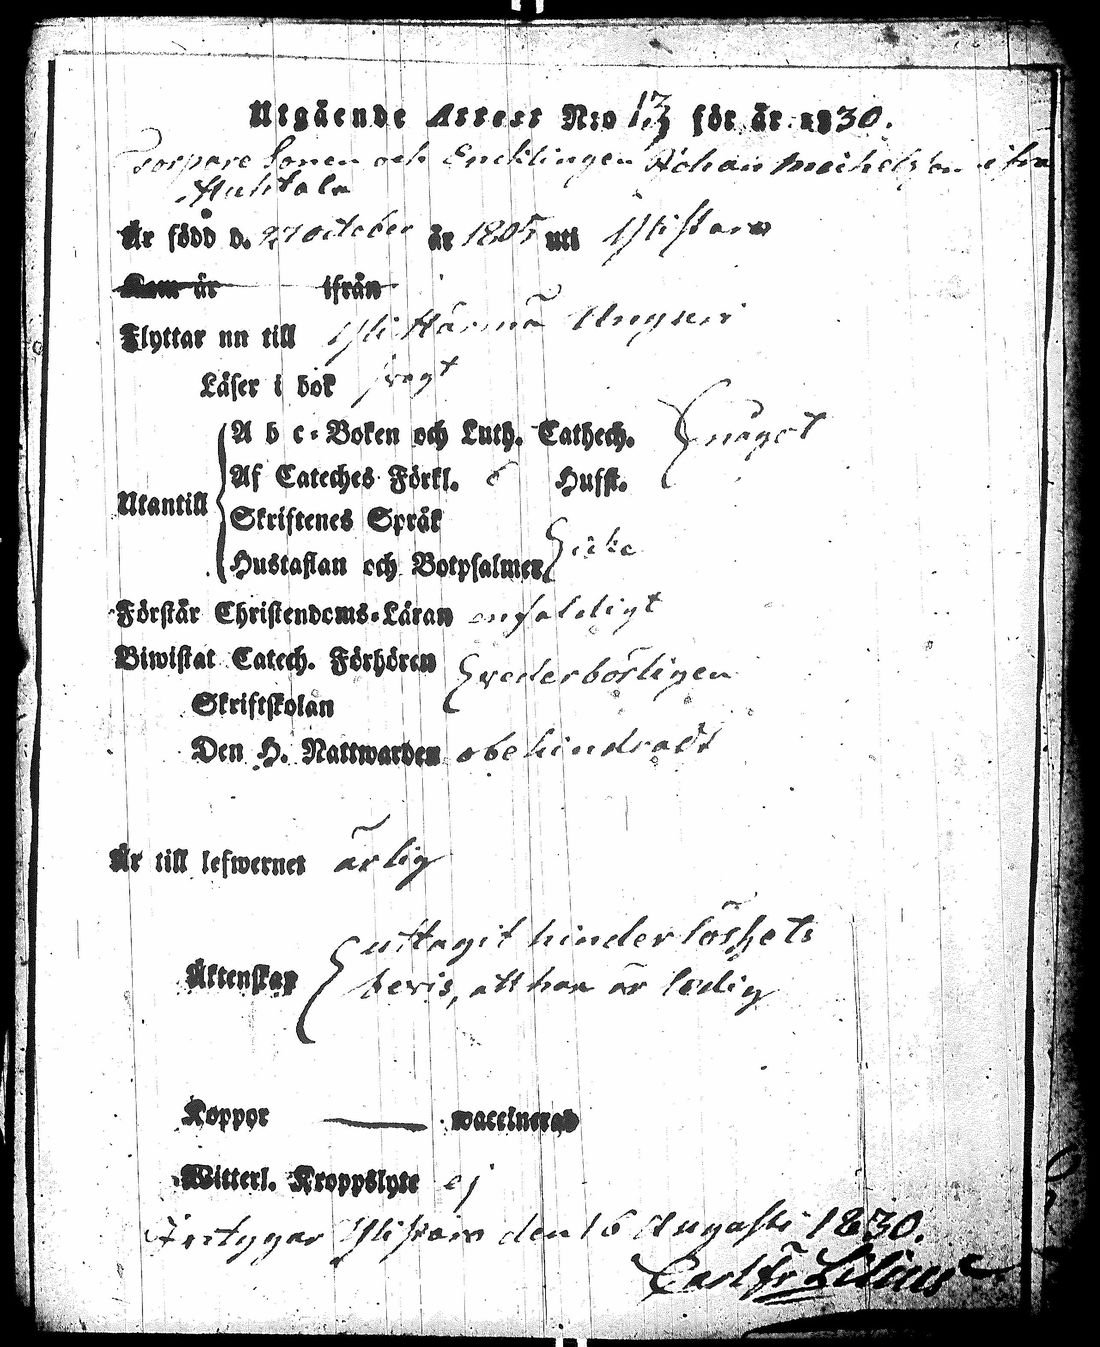 Utgående Attest N:o 13 för år 1830.
Torpare Sonen och Encklingen Johan Michelsson ifrån
Huhtala
Är född d. 27 October år 1805 uti Ylistaro
Kom år ifrån
Flyttar nu till Yli Härmä
Läser i bok svagt
Utantill
A b c-Boken och Luth. Cathech. något
Af Cateches Förkl. Husst.
Skriftenes Språk
Hustaflan och Botpsalmer icke
Förstår Christendoms-Läran enfaldigt
Biwistat Catech. Förhören vederbörligen
Skriftskolan
Den H. Nattwarden obehindradt
Är till lefwernet ärlig
Äktenskap
uttagit hinderlöshets
bevis, att han är ledig
Koppor — waccinerad
Witterl. Kroppslyte ej
Intygar Ylistaro den 16 Augusti 1830.
Carl Fr Lilius